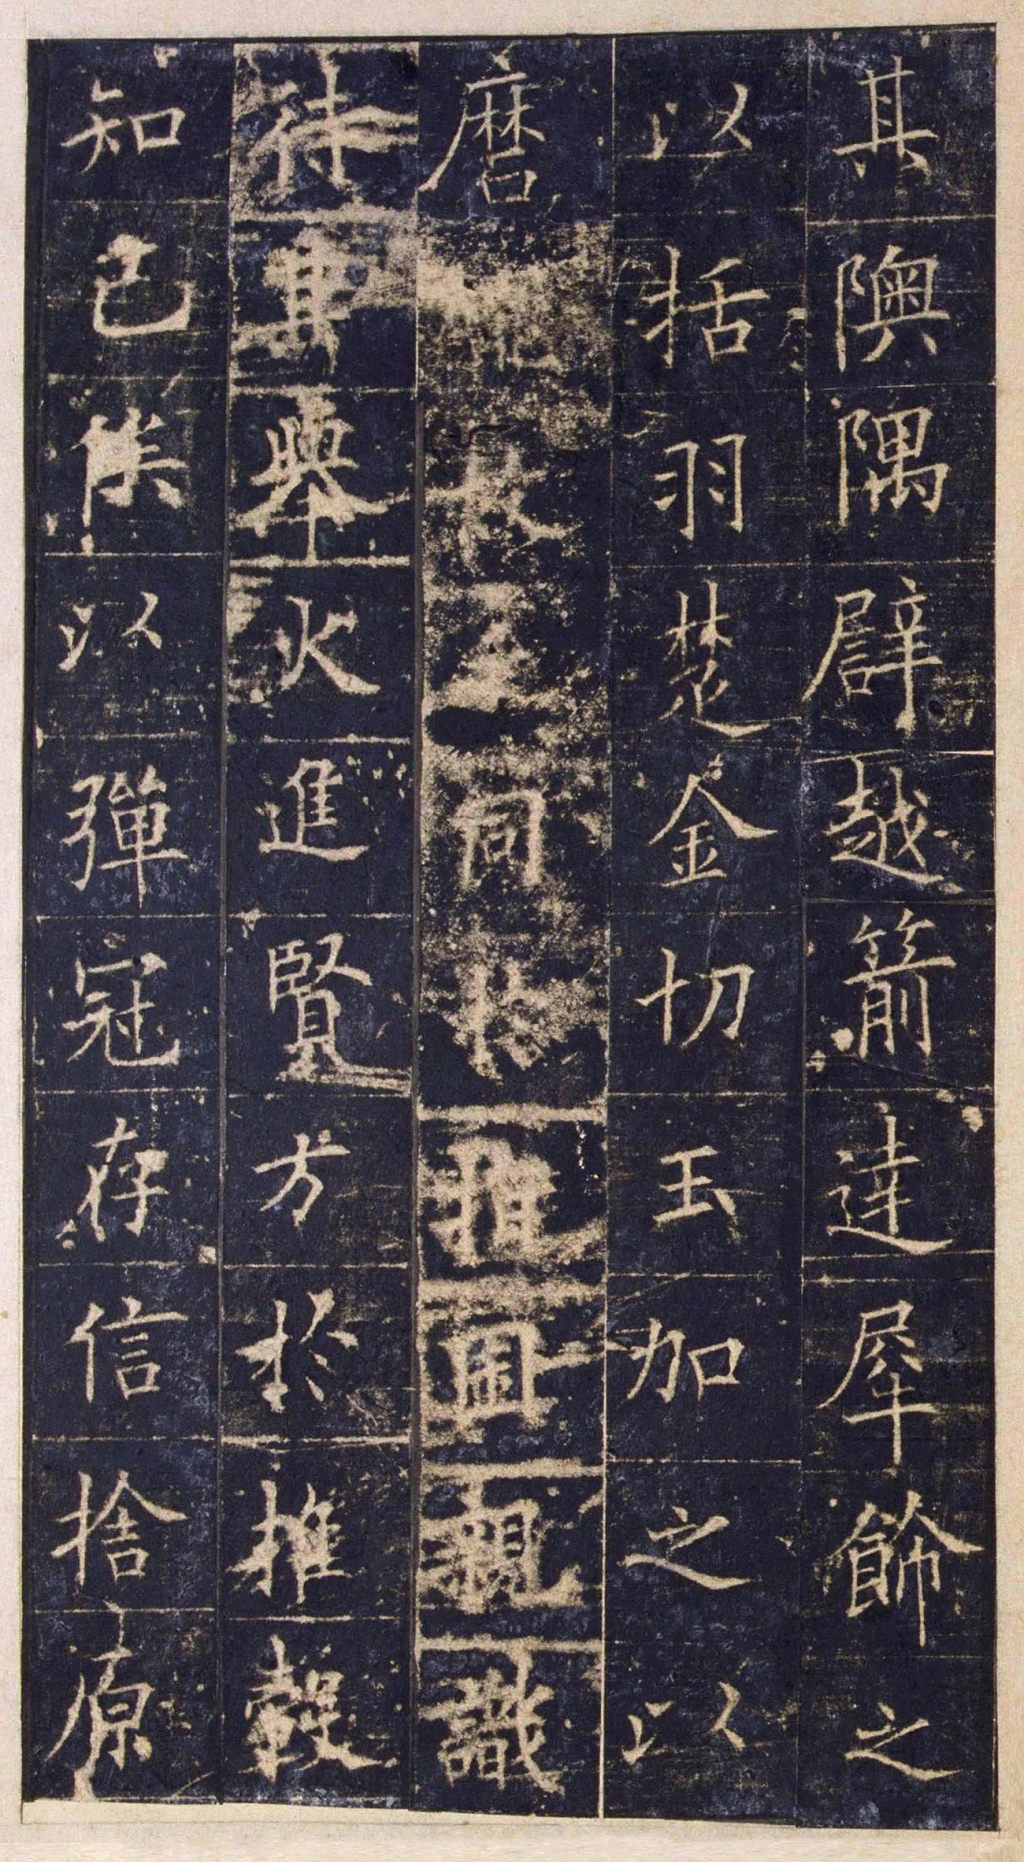 其隩隅辟越箭達犀飾之
以括羽楚金切玉加之以
磨 同於指囷親識
待其舉火進賢方於推轂
知己俟以彈冠存信捨原